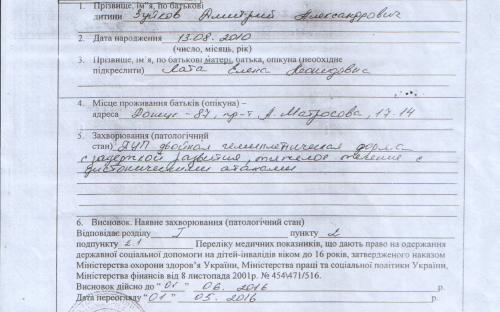 1. Прізвище, ім'я, по батькові
дитини Зуйков Дмитрий Александрович
2. Дата народження 13.08.2010
(число, місяць, рік)
3. Прізвище, ім'я, по батькові матері, батька, опікуна (необхідне
підкреслити) Лата Елена Леонидовна
4. Місце проживання батьків (опікуна) –
адреса Донецк-87, пр-т А. Матросова, 17-14
5. Захворювання (патологічний
стан) ДЦП двойная гемиплегическая форма
с задержкой развития, тяжелое течение с
дистоническими атаками
6. Висновок. Наявне захворювання (патологічний стан)
Відповідає розділу I пункту 2
підпункту 2.1 Переліку медичних показників, що дають право на одержання
державної соціальної допомоги на дітей-інвалідів віком до 16 років, затвердженого наказом
Міністерства охорони здоров'я України, Міністерства праці та соціальної політики України,
Міністерства фінансів від 8 листопада 2001р. № 454\471/516.
Висновок дійсно до "01" 06. 2016 р.
Дата переогляду "01" 05. 2016 р.